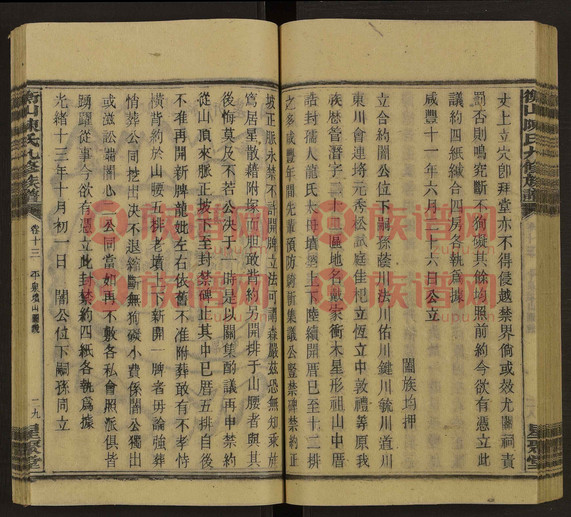 衡山陳氏九修族譜
丈上立穴卽拜堂亦不得侵越禁界倘或效尤闔祠責
罰否則鳴究斷不狥礙其餘均照前約今欲有憑立此
議約四紙緘合四房各執爲據
闔族均押
咸豐十一年六月二十六日公立
立合約闇公位下嗣孫蔭川法川佑川鍵川毓川道川
東川會連培元秀松試庭佳杞立恆立中敦禮等原我
族歷管潛字二區地名戴家衝木星形祖山中厝
誥封孺人龍氏太母墳塋上下陸續開厝已至十二排
之多咸豐年間先輩預防綺斷集議公豎禁碑禁約正
坡正脈永禁不許開牌立法可謂森嚴茲恐無知乘族
篤居星散藉附塚而胆敢背約另開排于山腰者與其
後悔莫及不若公决于一時是以闔集酌議再申禁約
從山頂來脈正坡下至封禁碑止其中已厝五排自後
不准再開新牌龍妣左右依舊不准附葬敢有不孝恃
橫背約於山腰五排老墳上下新開一牌者毋論強葬
悄葬公同挖出决不退縮斷無狥礙小費係闇公獨出
或滋訟端闇心二公同當如再不敷各私會照派俱皆
踴躍從事今欲有憑立此封禁約四紙各執爲據
光緒十三年十月初一日　闇公位下嗣孫同立
衡山陳氏九修族譜
卷十三
二九
星聚堂
星聚堂
族谱网
族谱网